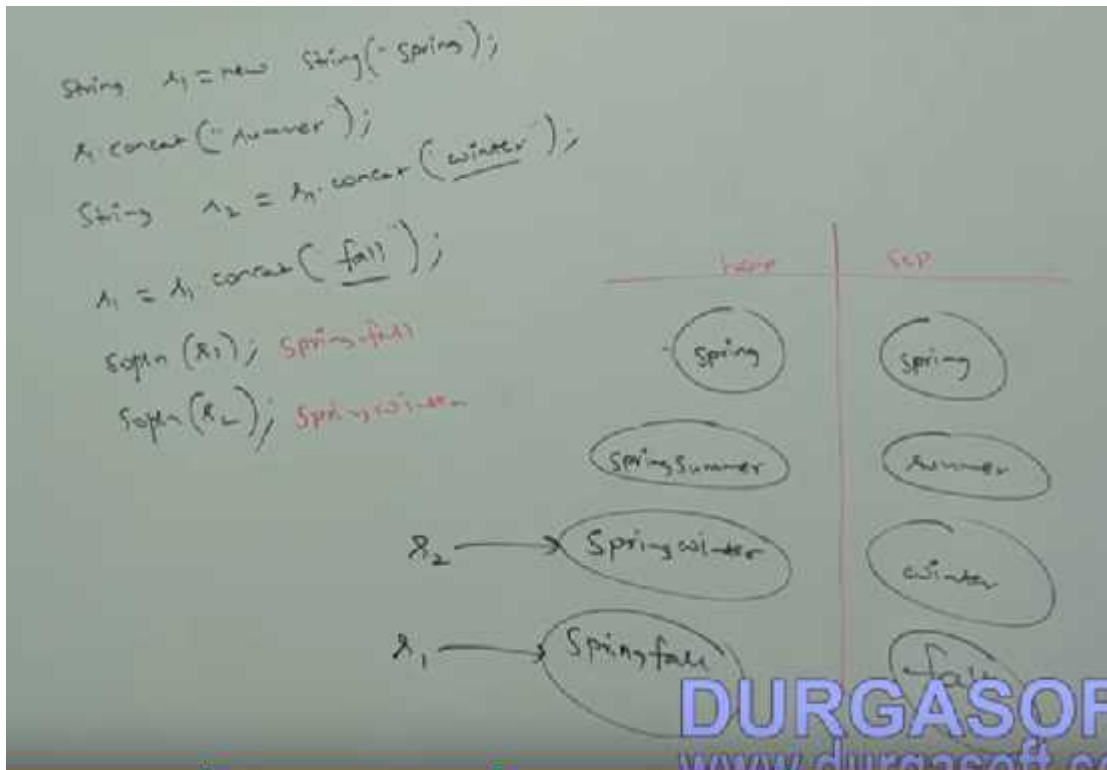 String s1 = new String("spring");
s1.concat("summer");
String s2 = s1.concat("winter");
s1 = s1.concat("fall");
sopln(s1); springfall
sopln(s2); springwinter
heap scp
spring spring
springsummer summer
s2 springwinter winter
s1 springfall fall
DURGASOF
www.durgasoft.co